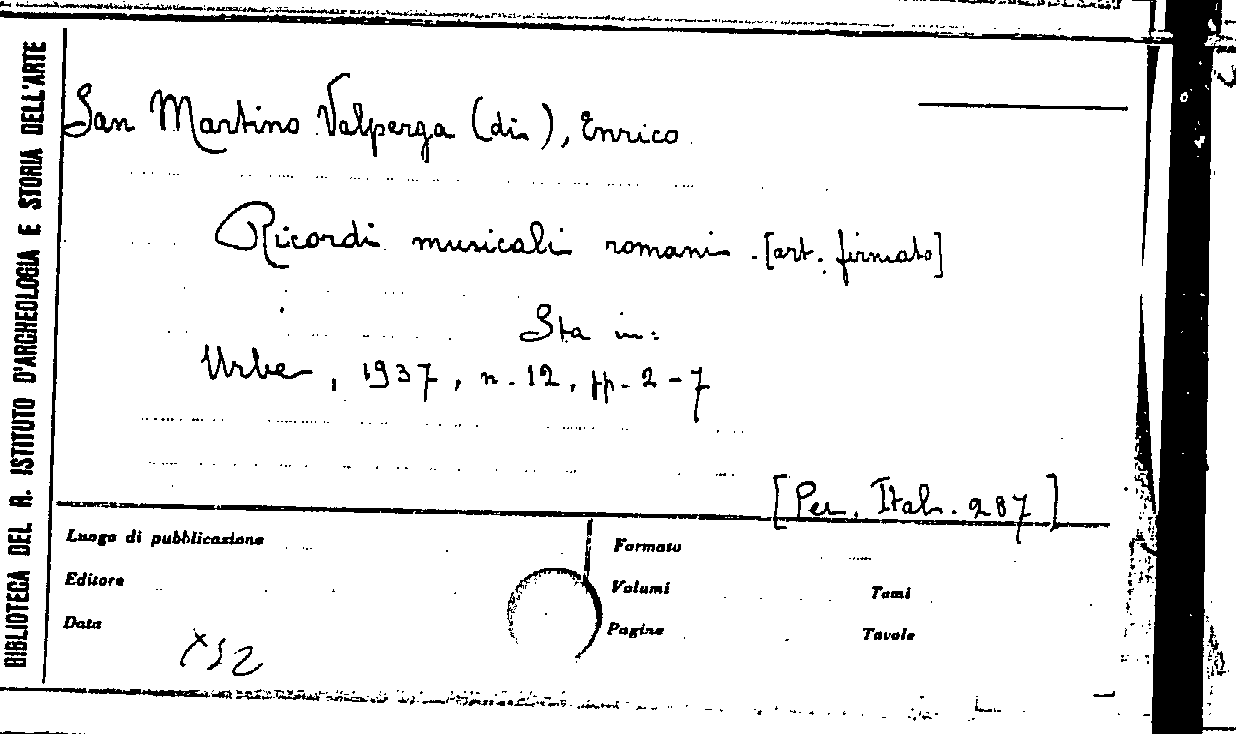 BIBLIOTECA DEL R. ISTITUTO D'ARCHEOLOGIA E STORIA DELL'ARTE
San Martino Valperga (di), Enrico
Ricordi musicali romani. [art. firmato]
Sta in:
Urbe, 1937, n. 12, pp. 2-7
[Per. Ital. 287]
Luogo di pubblicazione
Formato
Editore
Volumi Tomi
Data
Pagine Tavole